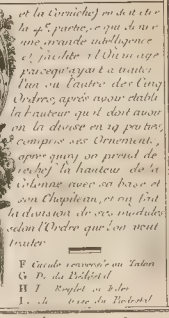 et la Corniche, en doit être
la 4e. partie, ce qui donne
une grande intelligence
et facilité à l'Ouvrage
parceque ayant à traiter
l'un ou l'autre des Cinq
Ordres, après avoir établi
la hauteur qu'il doit avoir
on la divise en 19 parties,
compris ses Ornemens,
après quoy on prend de
rechef la hauteur de la
Colonne avec sa base et
son Chapiteau, et on fait
la division de ces modules
selon l'Ordre que l'on veut
traiter
F Cimaise renversée ou Talon
G Dé du Piédéstal
H Reglet ou
Base du Piedestal